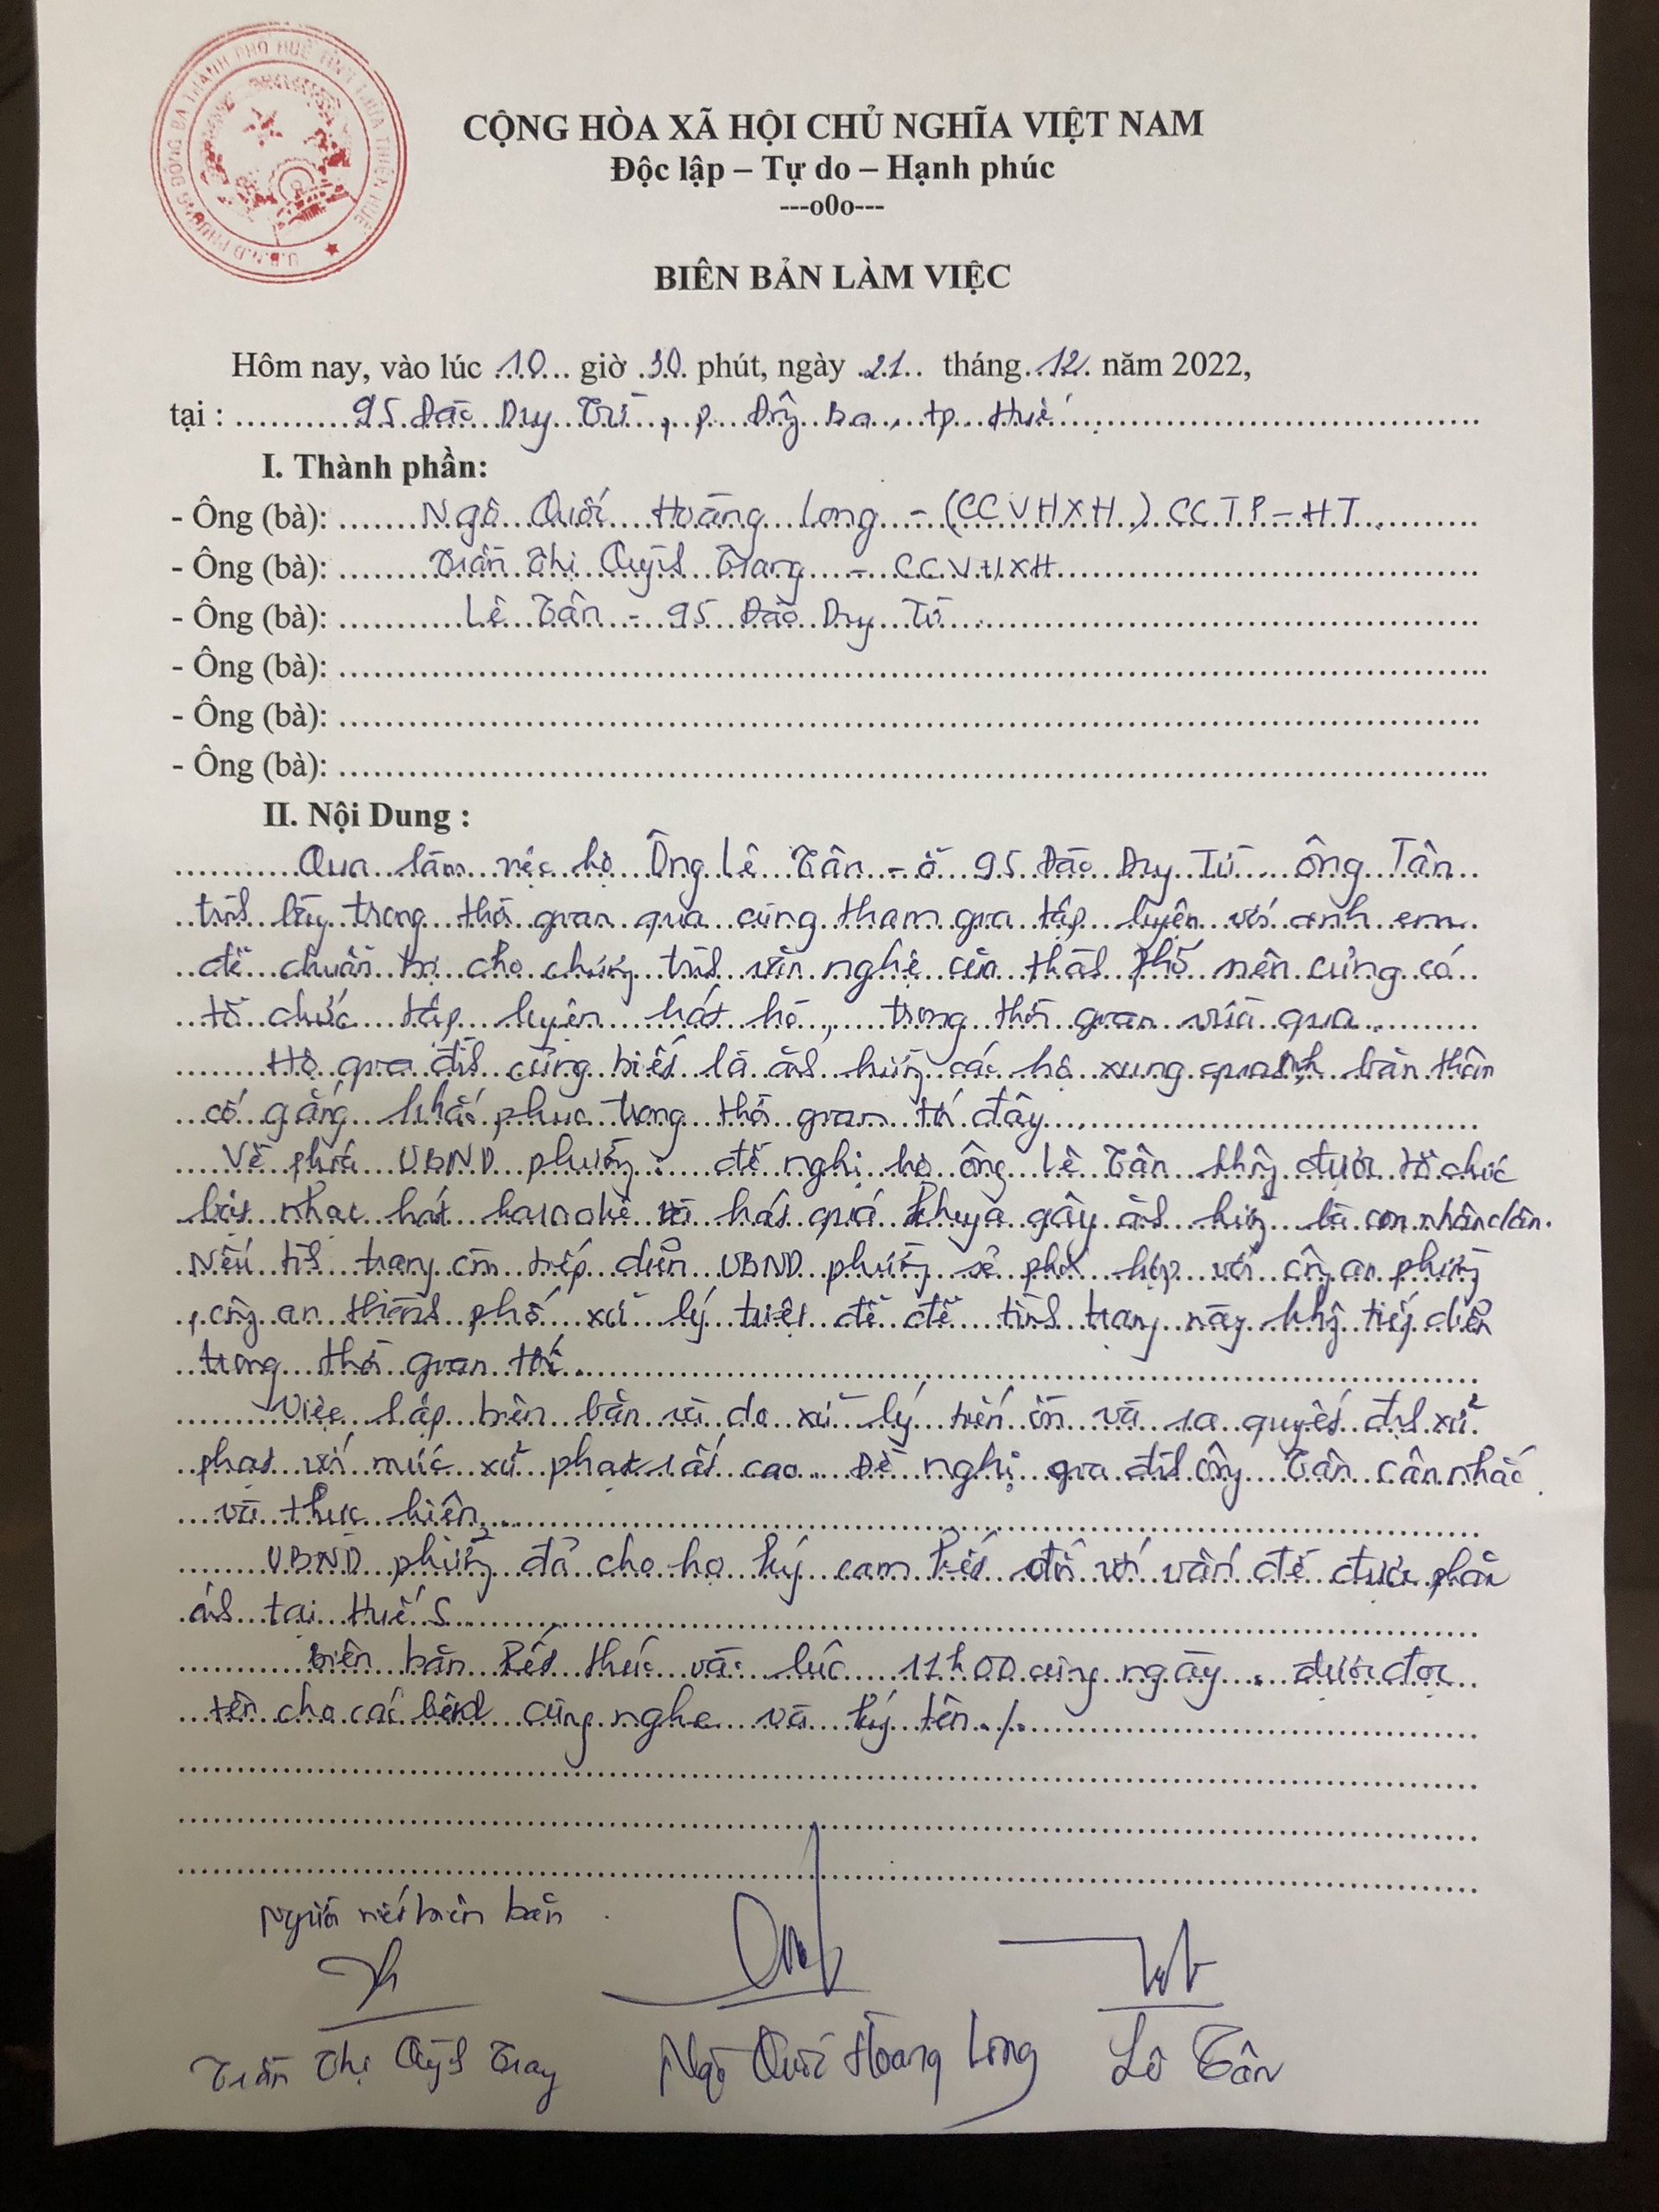 U.B.N.D PHƯỜNG ĐÔNG BA THÀNH PHỐ HUẾ TỈNH THỪA THIÊN HUẾ
CỘNG HÒA XÃ HỘI CHỦ NGHĨA VIỆT NAM
Độc lập – Tự do – Hạnh phúc
---o0o---
BIÊN BẢN LÀM VIỆC
Hôm nay, vào lúc 10 giờ 30 phút, ngày 21 tháng 12 năm 2022,
tại : 95 Đào Duy Từ, p. Đông Ba, tp Huế
I. Thành phần:
- Ông (bà): Ngô Quốc Hoàng Long - (CCVHXH) CCTP-HT.
- Ông (bà): Trần Thị Quỳnh Trang - CCVHXH
- Ông (bà): Lê Tân - 95 Đào Duy Từ
- Ông (bà):
- Ông (bà):
- Ông (bà):
II. Nội Dung :
Qua làm việc hộ Ông Lê Tân - ở 95 Đào Duy Từ. ông Tân
trình bày trong thời gian qua cũng tham gia tập luyện với anh em
để chuẩn bị cho chương trình văn nghệ của thành phố nên cũng có
tổ chức tập luyện hát hò, trong thời gian vừa qua.
Hộ gia đình cũng biết là ảnh hưởng các hộ xung quanh bản thân
cố gắng khắc phục trong thời gian tới đây.
Về phía UBND phường: đề nghị hộ ông Lê Tân không được tổ chức
hát nhạc hát karaoke và hát quá khuya gây ảnh hưởng bà con nhân dân.
Nếu tình trạng còn tiếp diễn UBND phường sẽ phối hợp với công an phường
, công an thành phố xử lý triệt để để tình trạng này không tiếp diễn
trong thời gian tới.
Việc lập biên bản và đo xử lý tiếng ồn và ra quyết định xử
phạt với mức xử phạt rất cao. Đề nghị gia đình ông Tân cân nhắc
và thực hiện.
UBND phường đã cho hộ ký cam kết đối với vấn đề được phản
ánh tại Huế S
Biên bản kết thúc vào lúc 11h00 cùng ngày, được đọc
tên cho các bên cùng nghe và ký tên./.
Người viết biên bản
Trần Thị Quỳnh Trang
Ngô Quốc Hoàng Long
Lê Tân